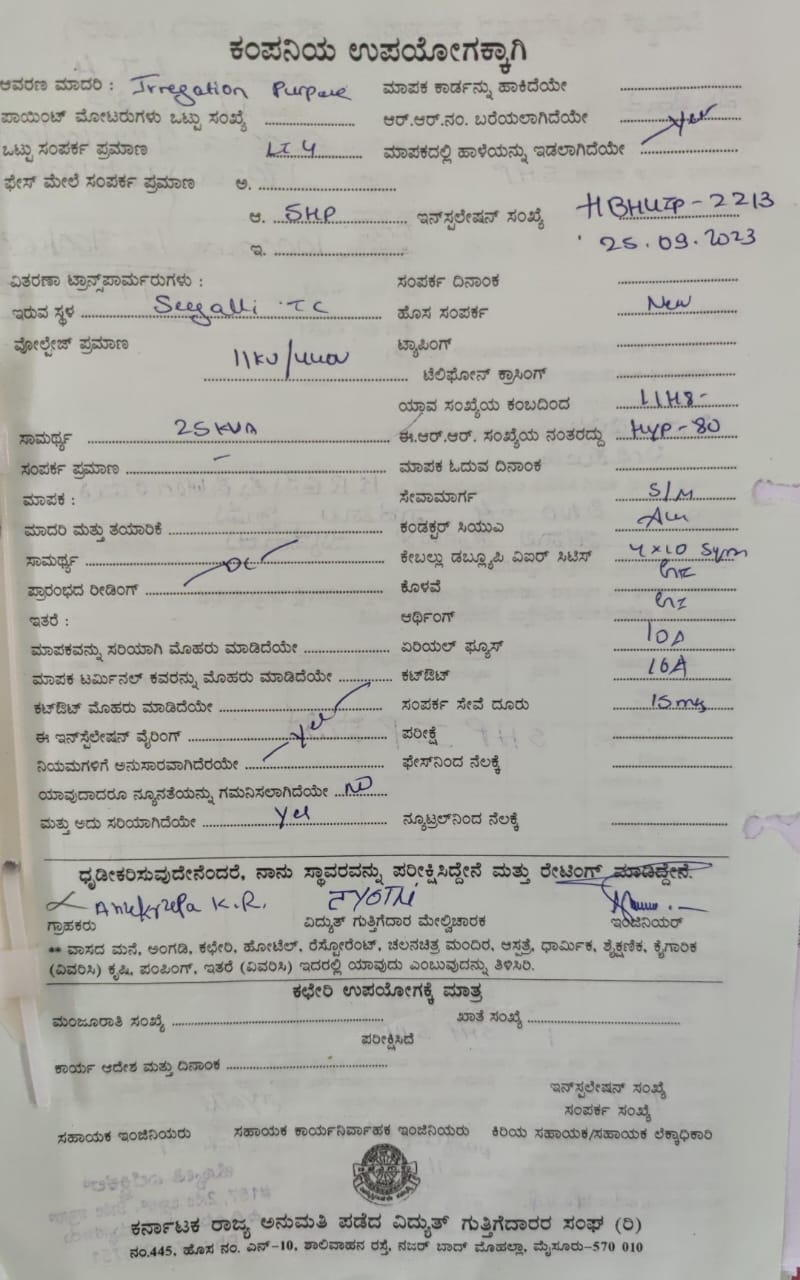 ಕಂಪನಿಯ ಉಪಯೋಗಕ್ಕಾಗಿ
ಆವರಣ ಮಾದರಿ : Irregation Purpose ಮಾಪಕ ಕಾರ್ಡನ್ನು ಹಾಕಿದೆಯೇ
ಪಾಯಿಂಟ್ ಮೋಟರುಗಳು ಒಟ್ಟು ಸಂಖ್ಯೆ ಆರ್.ಆರ್.ನಂ. ಬರೆಯಲಾಗಿದೆಯೇ Yes
ಒಟ್ಟು ಸಂಪರ್ಕ ಪ್ರಮಾಣ LI 4 ಮಾಪಕದಲ್ಲಿ ಹಾಳೆಯನ್ನು ಇಡಲಾಗಿದೆಯೇ
ಫೇಸ್ ಮೇಲೆ ಸಂಪರ್ಕ ಪ್ರಮಾಣ ಅ.
ಆ. 5HP ಇನ್‌ಸ್ಟಲೇಷನ್ ಸಂಖ್ಯೆ HBHUIP-2213
ಇ. 25.09.2023
ವಿತರಣಾ ಟ್ರಾನ್ಸ್‌ಪಾರ್ಮರುಗಳು : ಸಂಪರ್ಕ ದಿನಾಂಕ
ಇರುವ ಸ್ಥಳ TC ಹೊಸ ಸಂಪರ್ಕ New
ವೋಲ್ಟೇಜ್ ಪ್ರಮಾಣ 11KV/440V ಟ್ಯಾಪಿಂಗ್
ಟೆಲಿಫೋನ್ ಕ್ರಾಸಿಂಗ್
ಯಾವ ಸಂಖ್ಯೆಯ ಕಂಬದಿಂದ
ಸಾಮರ್ಥ್ಯ 25KVA ಈ.ಆರ್.ಆರ್. ಸಂಖ್ಯೆಯ ನಂತರದ್ದು HYP-80
ಸಂಪರ್ಕ ಪ್ರಮಾಣ - ಮಾಪಕ ಓದುವ ದಿನಾಂಕ
ಮಾಪಕ : ಸೇವಾಮಾರ್ಗ S/M
ಮಾದರಿ ಮತ್ತು ತಯಾರಿಕೆ ಕಂಡಕ್ಟರ್ ಸಿಯುಎ
ಸಾಮರ್ಥ್ಯ ಕೇಬಲ್ಲು ಡಬ್ಲ್ಯೂಪಿ ವಿಐರ್ ಸಿಟಿಸ್ 4x10 Sqm
ಪ್ರಾರಂಭದ ರೀಡಿಂಗ್ ಕೊಳವೆ
ಇತರೆ : ಆರ್ಥಿಂಗ್
ಮಾಪಕವನ್ನು ಸರಿಯಾಗಿ ಮೊಹರು ಮಾಡಿದೆಯೇ ಏರಿಯಲ್ ಫ್ಯೂಸ್ 10A
ಮಾಪಕ ಟರ್ಮಿನಲ್ ಕವರನ್ನು ಮೊಹರು ಮಾಡಿದೆಯೇ ಕಟ್‌ಔಟ್ 16A
ಕಟ್‌ಔಟ್ ಮೊಹರು ಮಾಡಿದೆಯೇ ಸಂಪರ್ಕ ಸೇವೆ ದೂರು 15mts
ಈ ಇನ್‌ಸ್ಟೆಲೇಷನ್ ವೈರಿಂಗ್ Yes ಪರೀಕ್ಷೆ
ನಿಯಮಗಳಿಗೆ ಅನುಸಾರವಾಗಿದೆರಯೇ ಫೇಸ್‌ನಿಂದ ನೆಲಕ್ಕೆ
ಯಾವುದಾದರೂ ನ್ಯೂನತೆಯನ್ನು ಗಮನಿಸಲಾಗಿದೆಯೇ NO
ಮತ್ತು ಅದು ಸರಿಯಾಗಿದೆಯೇ Yes ನ್ಯೂಟ್ರಲ್‌ನಿಂದ ನೆಲಕ್ಕೆ
ಧೃಡೀಕರಿಸುವುದೇನೆಂದರೆ, ನಾನು ಸ್ಥಾವರವನ್ನು ಪರೀಕ್ಷಿಸಿದ್ದೇನೆ ಮತ್ತು ರೇಟಿಂಗ್ ಮಾಡಿದ್ದೇನೆ.
K.R. JYOTHI
ಗ್ರಾಹಕರು ವಿದ್ಯುತ್ ಗುತ್ತಿಗೆದಾರ ಮೇಲ್ವಿಚಾರಕ ಇಂಜಿನಿಯರ್
** ವಾಸದ ಮನೆ, ಅಂಗಡಿ, ಕಛೇರಿ, ಹೋಟೆಲ್, ರೆಸ್ಟೋರೆಂಟ್, ಚಲನಚಿತ್ರ ಮಂದಿರ, ಆಸ್ಪತ್ರೆ, ಧಾರ್ಮಿಕ, ಶೈಕ್ಷಣಿಕ, ಕೈಗಾರಿಕ
(ವಿವರಿಸಿ) ಕೃಷಿ, ಪಂಪಿಂಗ್, ಇತರೆ (ವಿವರಿಸಿ) ಇದರಲ್ಲಿ ಯಾವುದು ಎಂಬುವುದನ್ನು ತಿಳಿಸಿರಿ.
ಕಛೇರಿ ಉಪಯೋಗಕ್ಕೆ ಮಾತ್ರ
ಮಂಜೂರಾತಿ ಸಂಖ್ಯೆ ಖಾತೆ ಸಂಖ್ಯೆ
ಪರೀಕ್ಷಿಸಿದೆ
ಕಾರ್ಯ ಆದೇಶ ಮತ್ತು ದಿನಾಂಕ
ಇನ್‌ಸ್ಟಲೇಷನ್ ಸಂಖ್ಯೆ
ಸಂಪರ್ಕ ಸಂಖ್ಯೆ
ಸಹಾಯಕ ಇಂಜಿನಿಯರು ಸಹಾಯಕ ಕಾರ್ಯನಿರ್ವಾಹಕ ಇಂಜಿನಿಯರು ಕಿರಿಯ ಸಹಾಯಕ/ಸಹಾಯಕ ಲೆಕ್ಕಾಧಿಕಾರಿ
ಕರ್ನಾಟಕ ರಾಜ್ಯ ಅನುಮತಿ ಪಡೆದ ವಿದ್ಯುತ್ ಗುತ್ತಿಗೆದಾರರ ಸಂಘ (ರಿ)
ನಂ.445, ಹೊಸ ನಂ. ಎನ್-10, ಶಾಲಿವಾಹನ ರಸ್ತೆ, ನಜರ್ ಬಾದ್ ಮೊಹಲ್ಲಾ, ಮೈಸೂರು-570 010